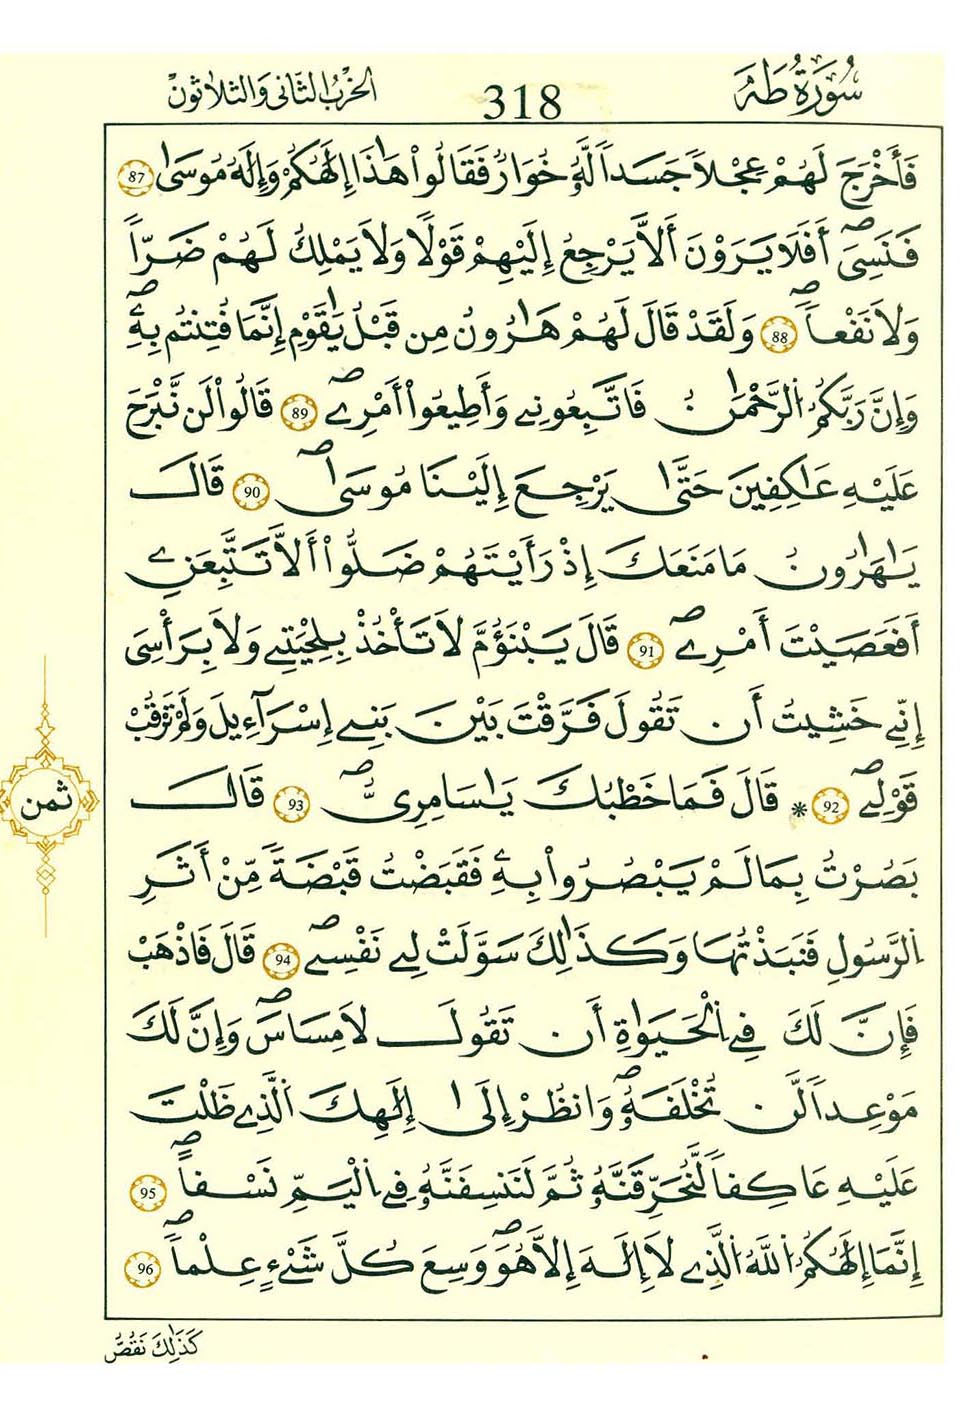 سُورَةُ طَهَ
318
الحِزْبُ الثَّانِي وَالثَّلَاثُونَ
فَأَخْرَجَ لَهُمْ عِجْلاً جَسَداً لَّهُۥ خُوَارٌ فَقَالُواْ هَٰذَا إِلَٰهُكُمْ وَإِلَٰهُ مُوسَىٰ 87
فَنَسِىَ أَفَلَا يَرَوْنَ أَلَّا يَرْجِعُ إِلَيْهِمْ قَوْلًا وَلَا يَمْلِكُ لَهُمْ ضَرّاً
وَلَا نَفْعاً 88 وَلَقَدْ قَالَ لَهُمْ هَٰرُونُ مِن قَبْلُ يَٰقَوْمِ إِنَّمَا فُتِنتُم بِهِۦ
وَإِنَّ رَبَّكُمُ الرَّحْمَٰنُ فَاتَّبِعُونِے وَأَطِيعُواْ أَمْرِے 89 قَالُواْ لَن نَّبْرَحَ
عَلَيْهِ عَٰكِفِينَ حَتَّىٰ يَرْجِعَ إِلَيْنَا مُوسَىٰ 90 قَالَ
يَٰهَٰرُونُ مَا مَنَعَكَ إِذْ رَأَيْتَهُمْ ضَلُّواْ أَلَّا تَتَّبِعَنِے
أَفَعَصَيْتَ أَمْرِے 91 قَالَ يَبْنَؤُمَّ لَا تَأْخُذْ بِلِحْيَتِے وَلَا بِرَأْسِىَ
إِنِّے خَشِيتُ أَن تَقُولَ فَرَّقْتَ بَيْنَ بَنِے إِسْرَآءِيلَ وَلَمْ تَرْقُبْ
قَوْلِے 92 * قَالَ فَمَا خَطْبُكَ يَٰسَامِرِىُّ 93 قَالَ
ثمن
بَصُرْتُ بِمَا لَمْ يَبْصُرُواْ بِهِۦ فَقَبَضْتُ قَبْضَةً مِّنْ أَثَرِ
الرَّسُولِ فَنَبَذْتُهَا وَكَذَٰلِكَ سَوَّلَتْ لِے نَفْسِے 94 قَالَ فَاذْهَبْ
فَإِنَّ لَكَ فِے الْحَيَوٰةِ أَن تَقُولَ لَا مِسَاسَ وَإِنَّ لَكَ
مَوْعِداً لَّن تُخْلَفَهُۥ وَانظُرْ إِلَىٰ إِلَٰهِكَ الَّذِے ظَلْتَ
عَلَيْهِ عَاكِفاً لَّنُحَرِّقَنَّهُۥ ثُمَّ لَنَنسِفَنَّهُۥ فِے الْيَمِّ نَسْفاً 95
إِنَّمَا إِلَٰهُكُمُ اللَّهُ الَّذِے لَا إِلَٰهَ إِلَّا هُوَ وَسِعَ كُلَّ شَےْءٍ عِلْماً 96
كَذَٰلِكَ نَقُصُّ